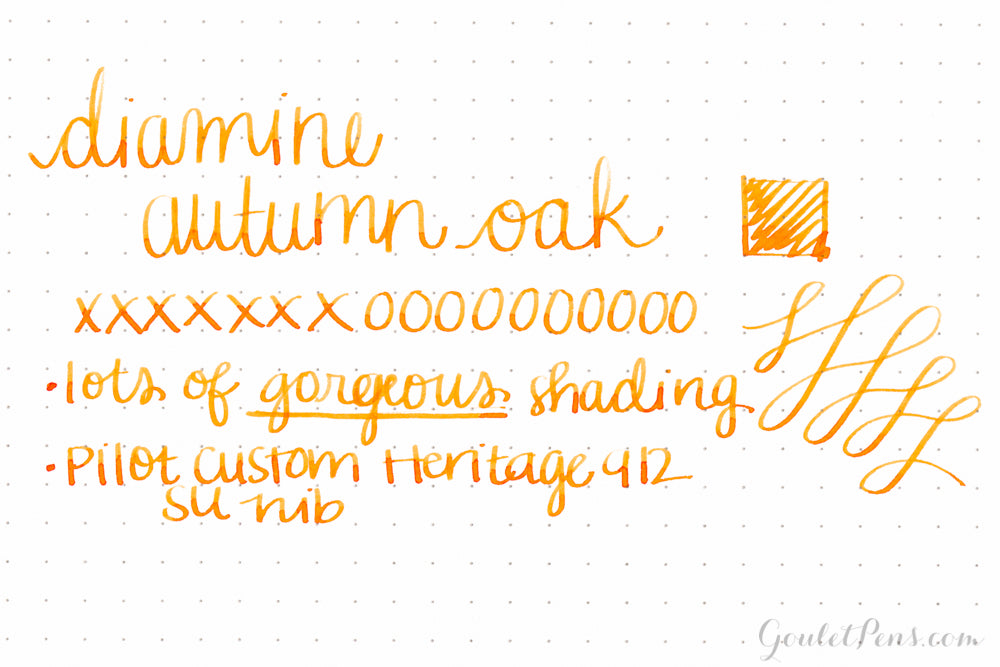 diamine
autumn oak
xxxxxxx oooooooooo
• lots of gorgeous shading
• Pilot Custom Heritage 912
SU nib
GouletPens.com